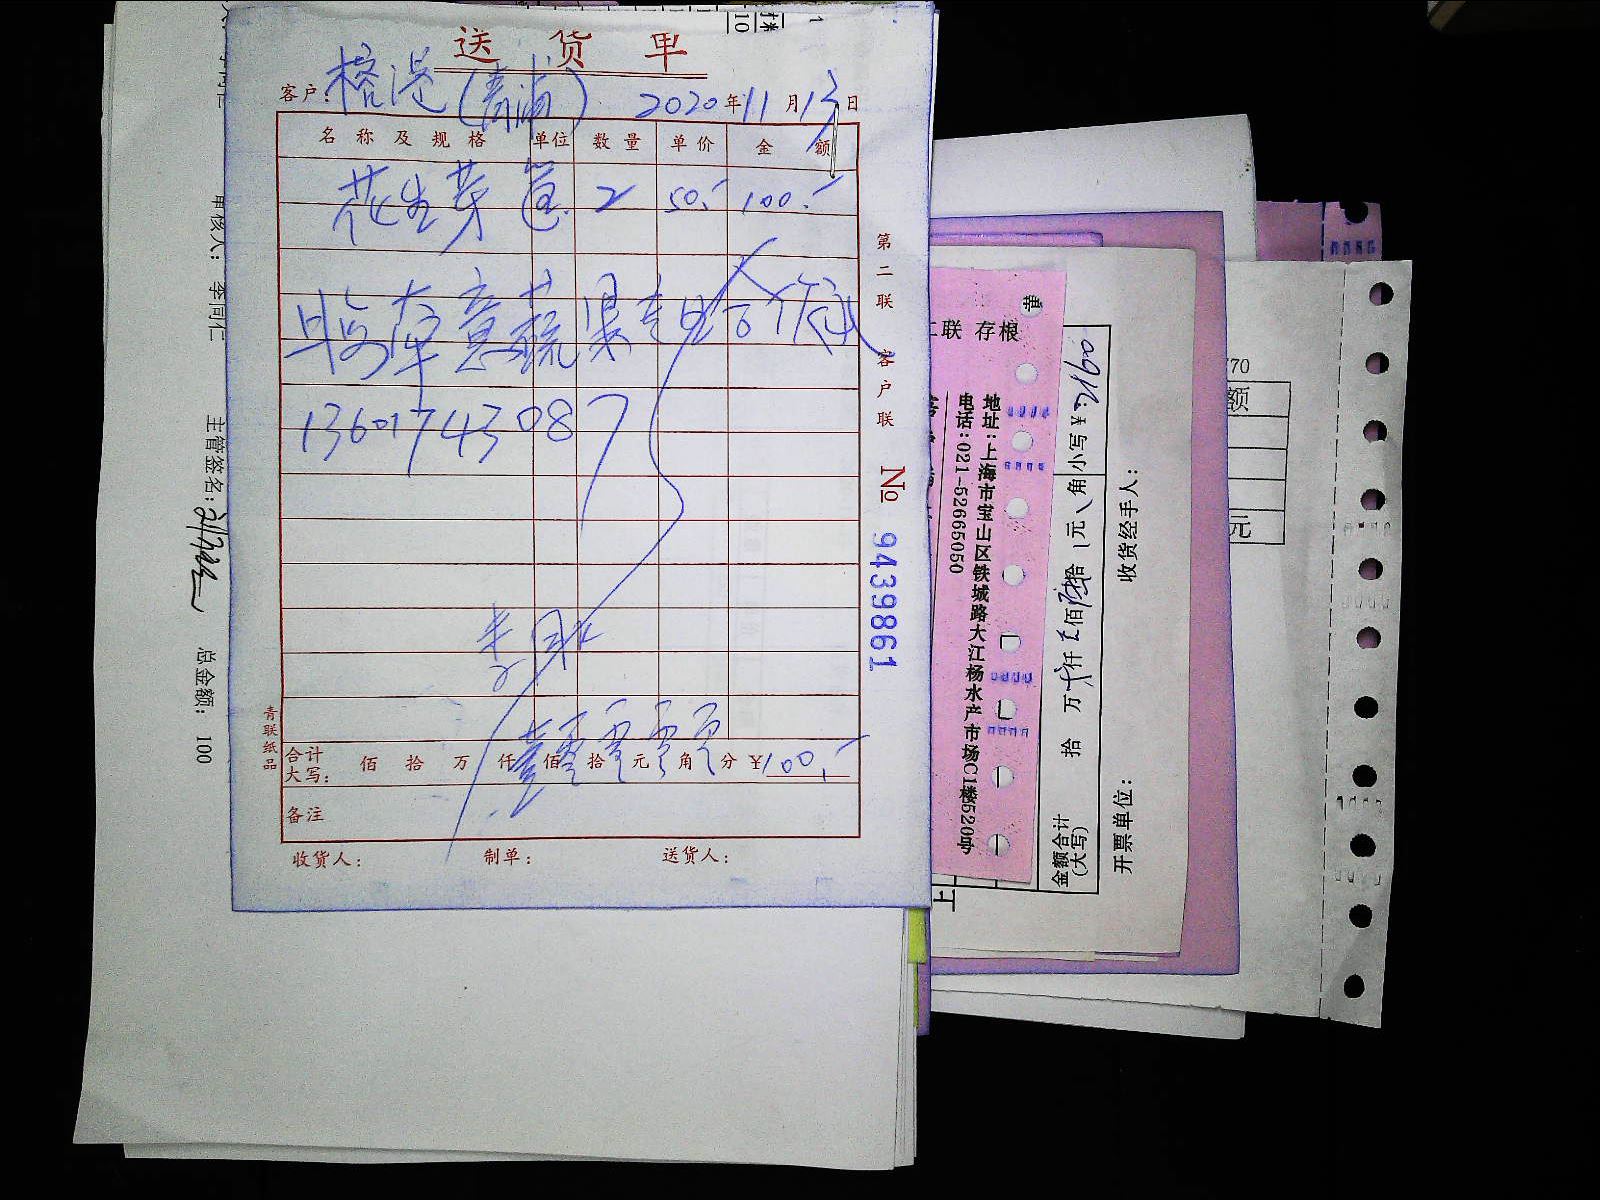 送货单
客户：榕港（青浦） 2020年11月13日
名称及规格 单位 数量 单价 金额
花生芽 筐 2 50.- 100.-
蔬果专业合作社
13601743087
合计大写： 佰 拾 万 仟 壹佰 零拾 零元 零角 零分 ¥100.-
备注
收货人： 制单： 送货人：
第二联 客户联
№ 9439861
青联纸品
审核人： 李同仁
主管签名：
总金额： 100
二联 存根
黄
地址：上海市宝山区铁城路大江杨水产市场C1楼520中
电话：021-52665050
小写¥：2160
金额合计(大写) 拾 万 仟 佰 拾 元 角
收货经手人：
开票单位：
70
额
元
上
10
1